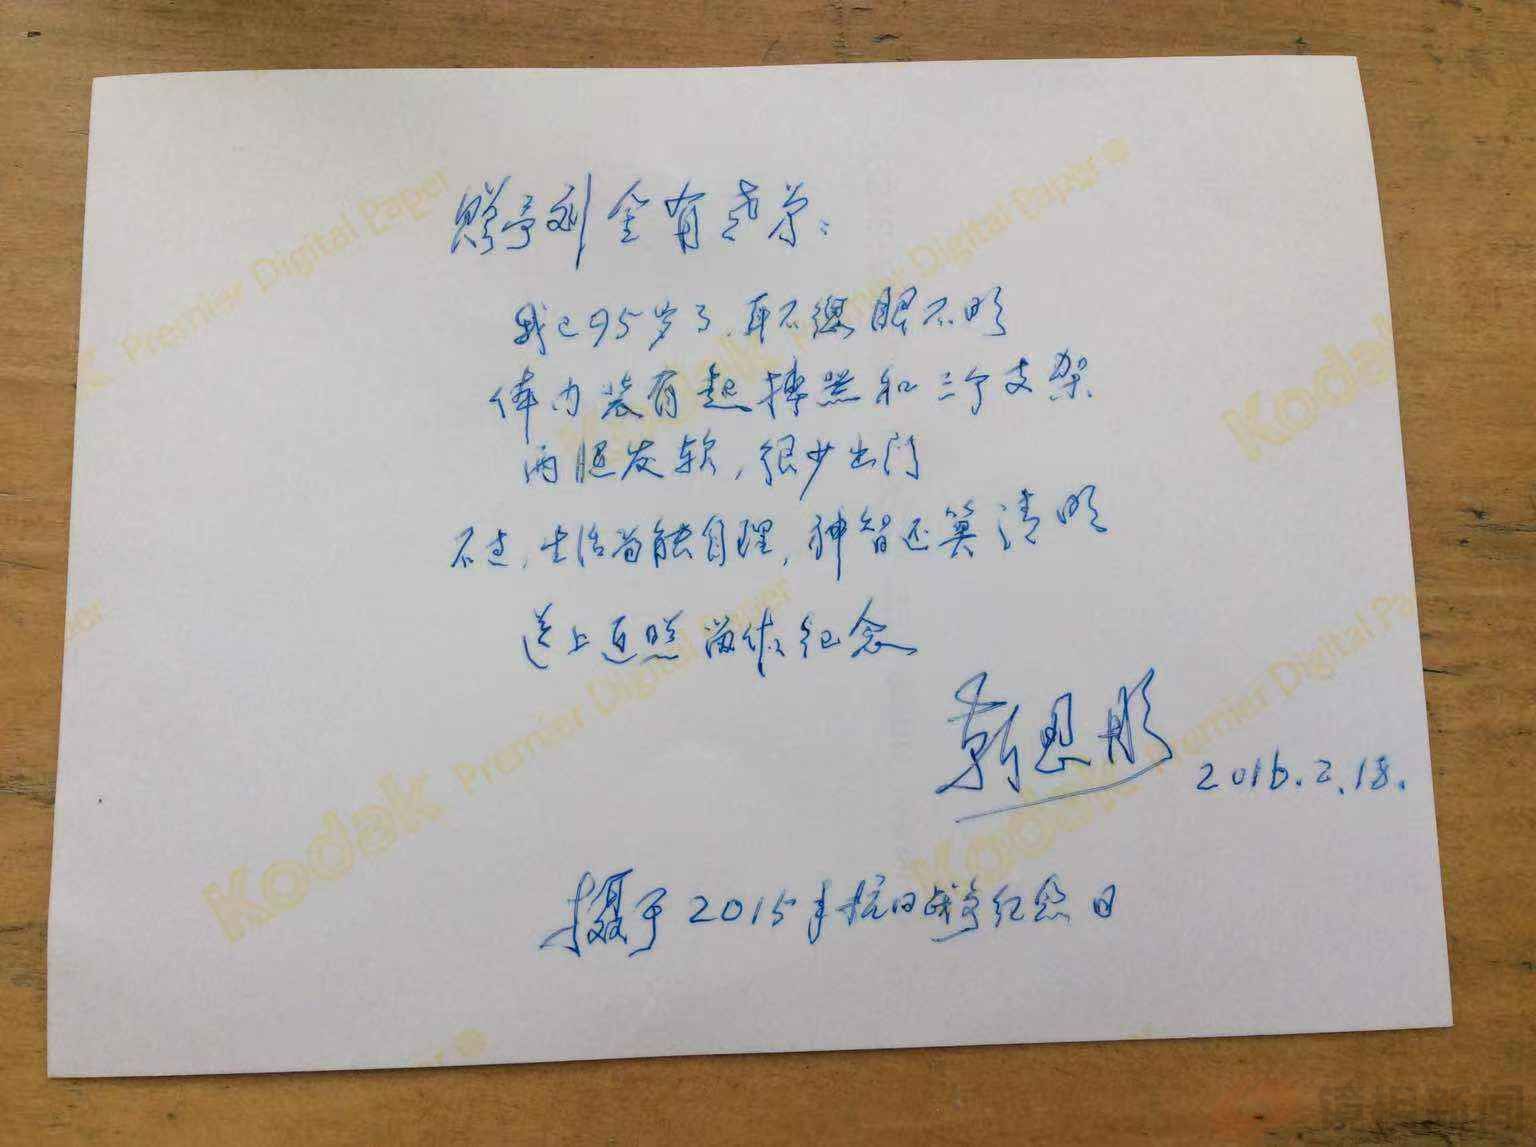 赠予刘金有老弟：
我已95岁了，耳不聪眼不明
体内装有起搏器和三个支架
两腿发软，很少出门
不过，生活尚能自理，神智还算清明
送上近照留作纪念
靳恩彤
2016.2.18.
摄于2015年抗日战争纪念日
Kodak Premier Digital Paper
Kodak Premier Digital Paper
Kodak Premier Digital Paper
Kodak Premier Digital Paper